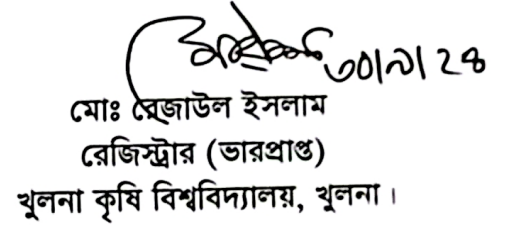 ৩০/৯/২৪
মোঃ রেজাউল ইসলাম
রেজিস্ট্রার (ভারপ্রাপ্ত)
খুলনা কৃষি বিশ্ববিদ্যালয়, খুলনা।